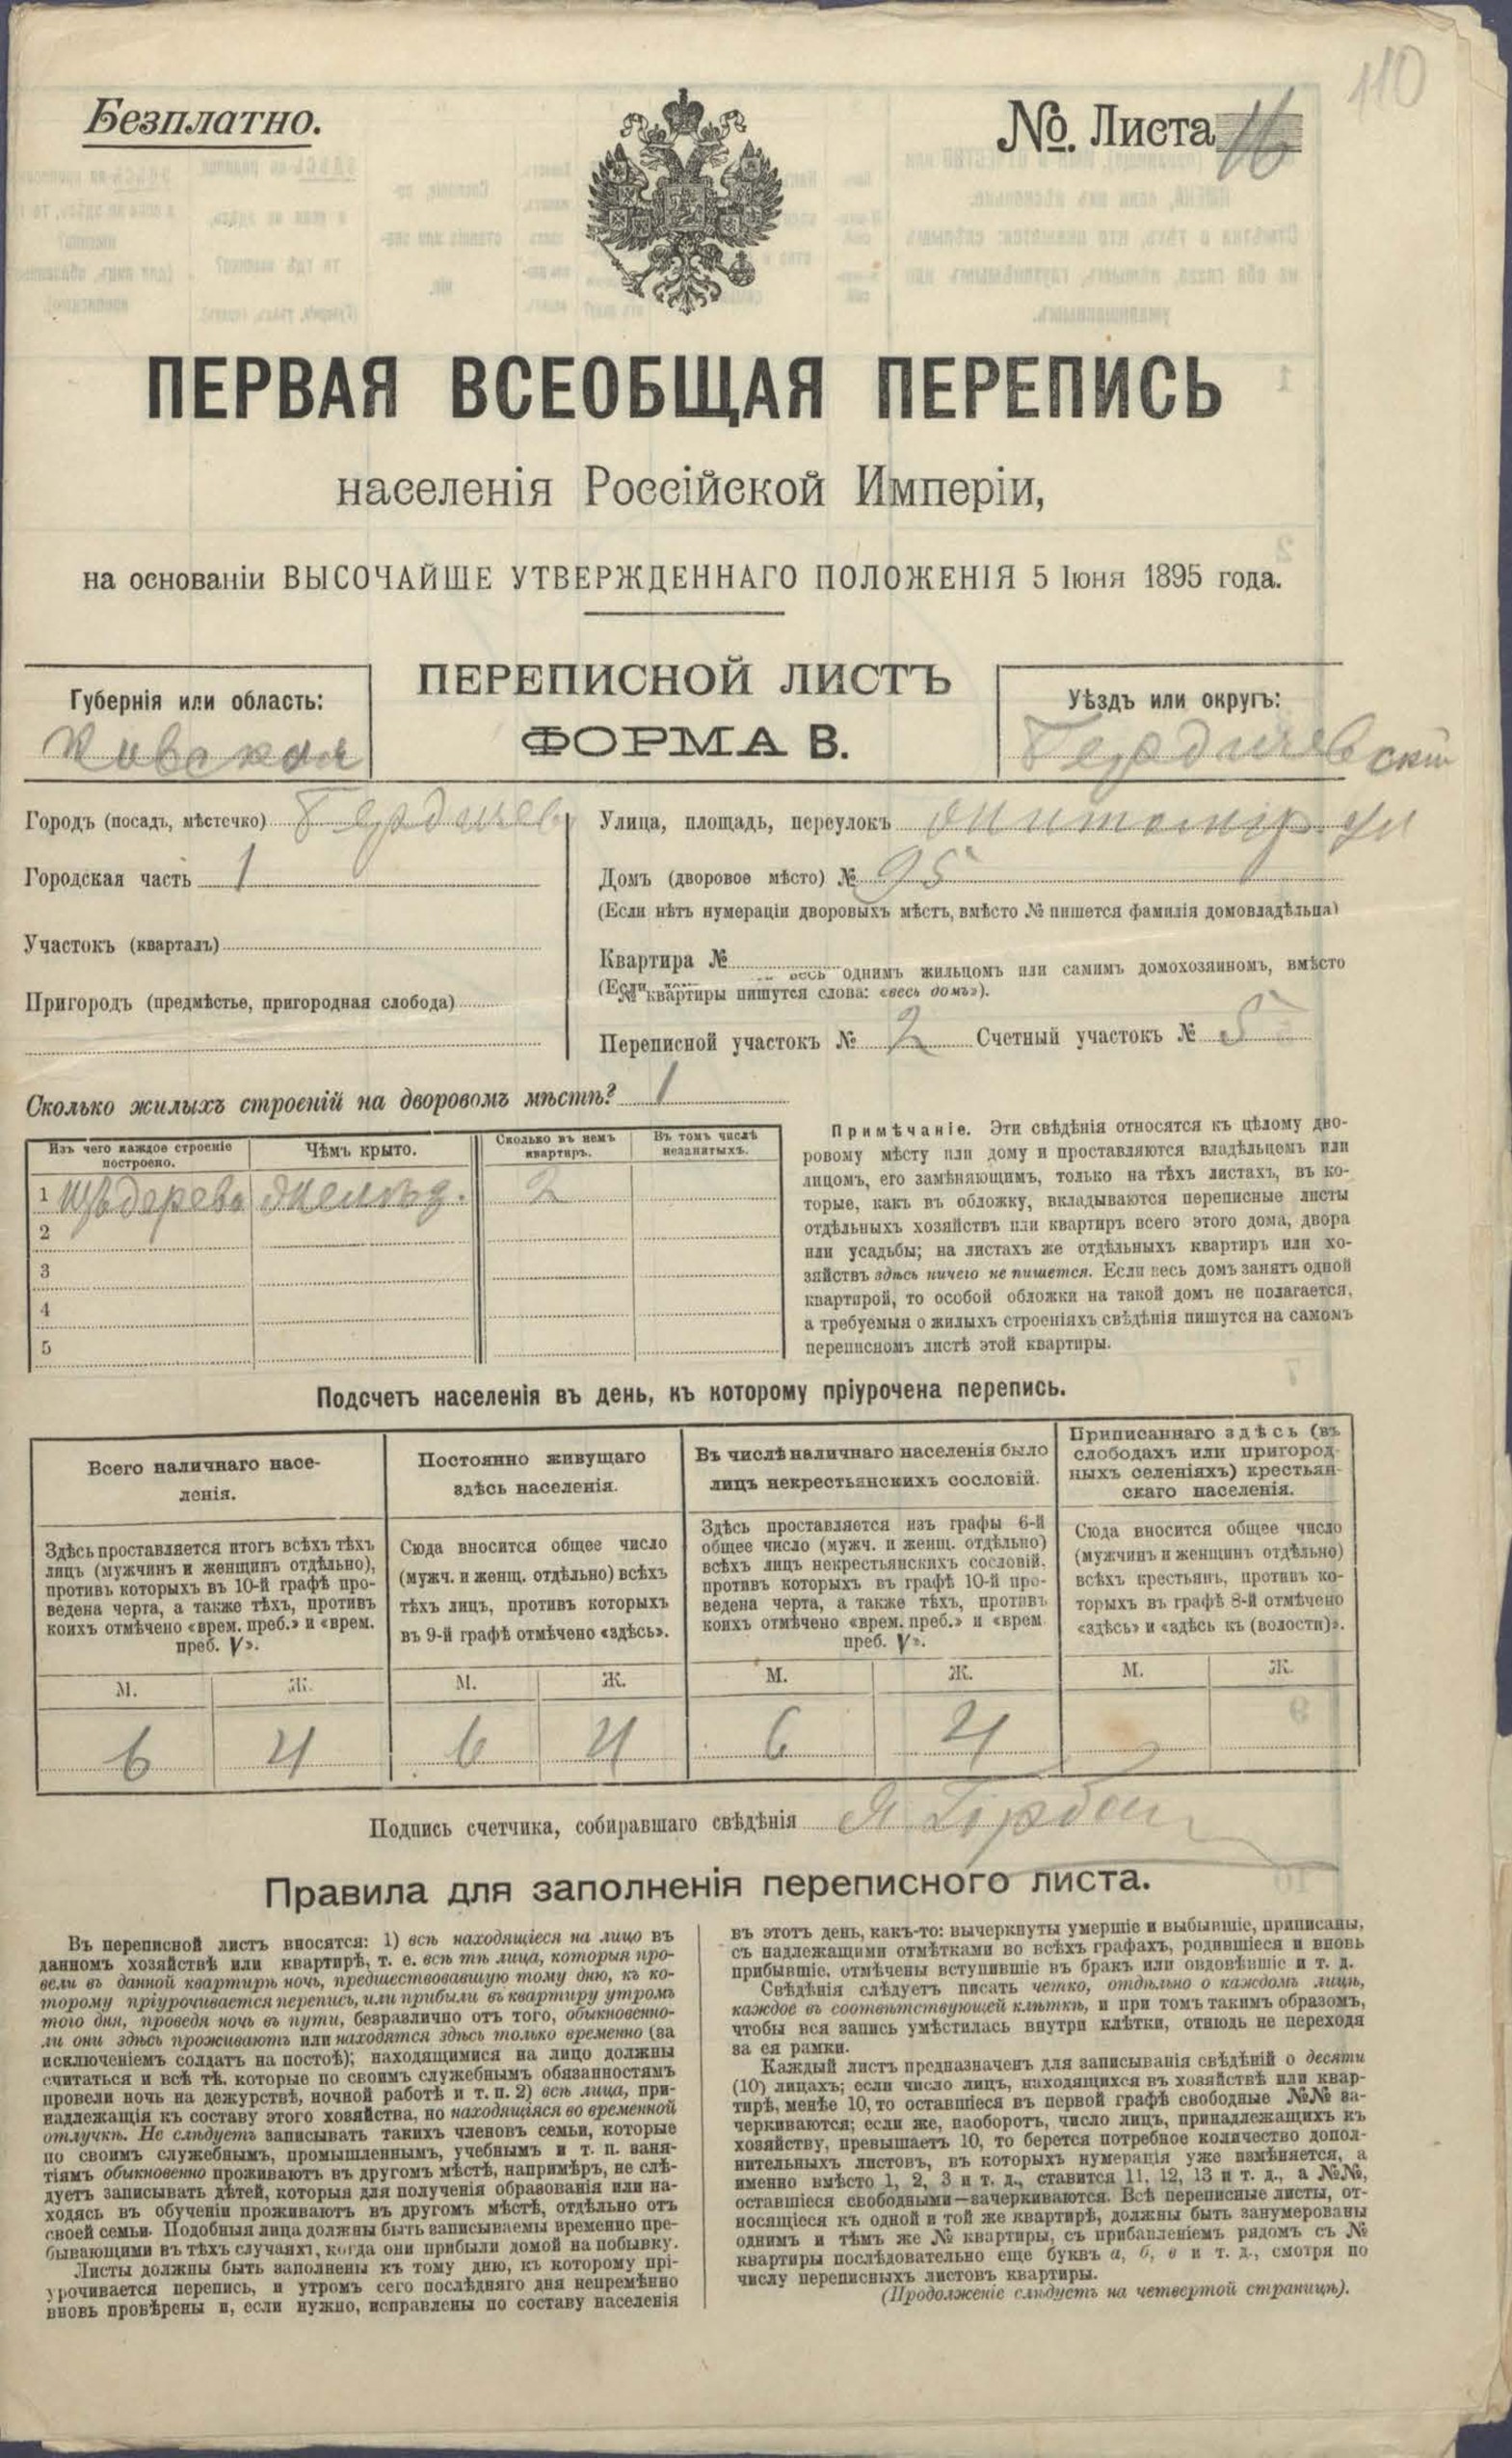 110
Безплатно.
№. Листа 16
ПЕРВАЯ ВСЕОБЩАЯ ПЕРЕПИСЬ
населенія Россійской Имперіи,
на основаніи ВЫСОЧАЙШЕ УТВЕРЖДЕННАГО ПОЛОЖЕНІЯ 5 Іюня 1895 года.
ПЕРЕПИСНОЙ ЛИСТЪ
ФОРМА В.
Губернія или область:
Киевская
Уѣздъ или округъ:
Бердичевскій
Городъ (посадъ, мѣстечко) Бердичев
Городская часть 1
Участокъ (кварталъ)
Пригородъ (предмѣстье, пригородная слобода)
Улица, площадь, переулокъ Житомир. ул
Домъ (дворовое мѣсто) № 95
(Если нѣтъ нумераціи дворовыхъ мѣстъ, вмѣсто № пишется фамилія домовладѣльца)
Квартира №
(Если весь однимъ жильцомъ или самимъ домохозяиномъ, вмѣсто
№ квартиры пишутся слова: «весь домъ»).
Переписной участокъ № 2 Счетный участокъ № 5
Сколько жилыхъ строеній на дворовомъ мѣстѣ? 1
Изъ чего каждое строеніе построено.
Чѣмъ крыто.
Сколько въ немъ квартиръ.
Въ томъ числѣ незанятыхъ.
1 Изъ дерева Желѣз. 2
2
3
4
5
Примѣчаніе. Эти свѣдѣнія относятся къ цѣлому дво-
ровому мѣсту или дому и проставляются владѣльцемъ или
лицомъ, его замѣняющимъ, только на тѣхъ листахъ, въ ко-
торые, какъ въ обложку, вкладываются переписные листы
отдѣльныхъ хозяйствъ или квартиръ всего этого дома, двора
или усадьбы; на листахъ же отдѣльныхъ квартиръ или хо-
зяйствъ здѣсь ничего не пишется. Если весь домъ занятъ одной
квартирой, то особой обложки на такой домъ не полагается,
а требуемыя о жилыхъ строеніяхъ свѣдѣнія пишутся на самомъ
переписномъ листѣ этой квартиры.
Подсчетъ населенія въ день, къ которому пріурочена перепись.
Всего наличнаго насе-
ленія.
Здѣсь проставляется итогъ всѣхъ тѣхъ
лицъ (мужчинъ и женщинъ отдѣльно),
противъ которыхъ въ 10-й графѣ про-
ведена черта, а также тѣхъ, противъ
коихъ отмѣчено «врем. преб.» и «врем.
преб. V».
М. Ж.
6 4
Постоянно живущаго
здѣсь населенія.
Сюда вносится общее число
(мужч. и женщ. отдѣльно) всѣхъ
тѣхъ лицъ, противъ которыхъ
въ 9-й графѣ отмѣчено «здѣсь».
М. Ж.
6 4
Въ числѣ наличнаго населенія было
лицъ некрестьянскихъ сословій.
Здѣсь проставляется изъ графы 6-й
общее число (мужч. и женщ. отдѣльно)
всѣхъ лицъ некрестьянскихъ сословій,
противъ которыхъ въ графѣ 10-й про-
ведена черта, а также тѣхъ, противъ
коихъ отмѣчено «врем. преб.» и «врем
преб. V».
М. Ж.
6 4
Приписаннаго здѣсь (въ
слободахъ или пригород-
ныхъ селеніяхъ) крестьян-
скаго населенія.
Сюда вносится общее число
(мужчинъ и женщинъ отдѣльно)
всѣхъ крестьянъ, противъ ко-
торыхъ въ графѣ 8-й отмѣчено
«здѣсь» и «здѣсь къ (волости)».
М. Ж.
Подпись счетчика, собиравшаго свѣдѣнія
Правила для заполненія переписного листа.
Въ переписной листъ вносятся: 1) всѣ находящіеся на лицо въ
данномъ хозяйствѣ или квартирѣ, т. е. всѣ тѣ лица, которыя про-
вели въ данной квартирѣ ночь, предшествовавшую тому дню, къ ко-
торому пріурочивается перепись, или прибыли въ квартиру утромъ
того дня, проведя ночь въ пути, безразлично отъ того, обыкновенно-
ли они здѣсь проживаютъ или находятся здѣсь только временно (за
исключеніемъ солдатъ на постоѣ); находящимися на лицо должны
считаться и всѣ тѣ, которые по своимъ служебнымъ обязанностямъ
провели ночь на дежурствѣ, ночной работѣ и т. п. 2) всѣ лица, при-
надлежащія къ составу этого хозяйства, но находящіяся во временной
отлучкѣ. Не слѣдуетъ записывать такихъ членовъ семьи, которые
по своимъ служебнымъ, промышленнымъ, учебнымъ и т. п. заня-
тіямъ обыкновенно проживаютъ въ другомъ мѣстѣ, напримѣръ, не слѣ-
дуетъ записывать дѣтей, которыя для полученія образованія или на-
ходясь въ обученіи проживаютъ въ другомъ мѣстѣ, отдѣльно отъ
своей семьи. Подобныя лица должны быть записываемы временно пре-
бывающими въ тѣхъ случаяхъ, когда они прибыли домой на побывку.
Листы должны быть заполнены къ тому дню, къ которому прі-
урочивается перепись, и утромъ сего послѣдняго дня непремѣнно
вновь провѣрены и, если нужно, исправлены по составу населенія
въ этотъ день, какъ-то: вычеркнуты умершіе и выбывшіе, приписаны,
съ надлежащими отмѣтками во всѣхъ графахъ, родившіеся и вновь
прибывшіе, отмѣчены вступившіе въ бракъ или овдовѣвшіе и т. д.
Свѣдѣнія слѣдуетъ писать четко, отдѣльно о каждомъ лицѣ,
каждое въ соотвѣтствующей клѣткѣ, и при томъ такимъ образомъ,
чтобы вся запись умѣстилась внутри клѣтки, отнюдь не переходя
за ея рамки.
Каждый листъ предназначенъ для записыванія свѣдѣній о десяти
(10) лицахъ; если число лицъ, находящихся въ хозяйствѣ или квар-
тирѣ, менѣе 10, то оставшіеся въ первой графѣ свободные №№ за-
черкиваются; если же, наоборотъ, число лицъ, принадлежащихъ къ
хозяйству, превышаетъ 10, то берется потребное количество допол-
нительныхъ листовъ, въ которыхъ нумерація уже измѣняется, а
именно вмѣсто 1, 2, 3 и т. д., ставится 11, 12, 13 и т. д., а №№,
оставшіеся свободными—зачеркиваются. Всѣ переписные листы, от-
носящіеся къ одной и той же квартирѣ, должны быть занумерованы
однимъ и тѣмъ же № квартиры, съ прибавленіемъ рядомъ съ №
квартиры послѣдовательно еще буквъ а, б, в и т. д., смотря по
числу переписныхъ листовъ квартиры.
(Продолженіе слѣдуетъ на четвертой страницѣ).